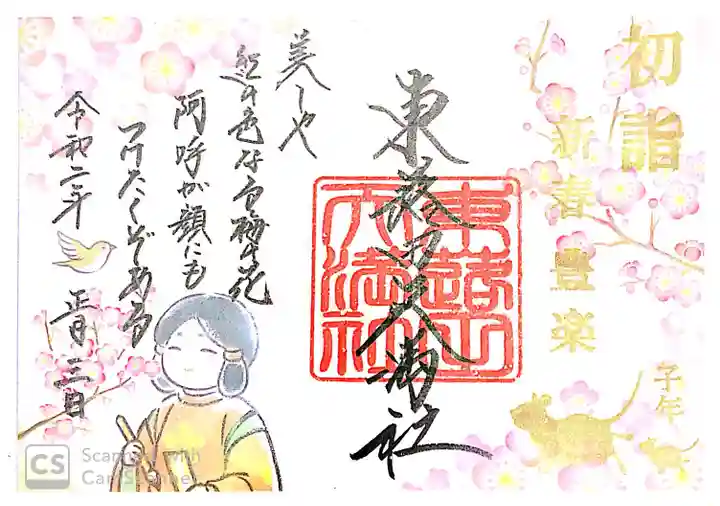 初詣
新春 豊楽
子年
東蕗田天満社
東蕗田
天満社
美しや
紅の色なる梅の花
阿呼が顔にも
つけたくぞある
令和二年
正月三日
CS Scanned with
CamScanner